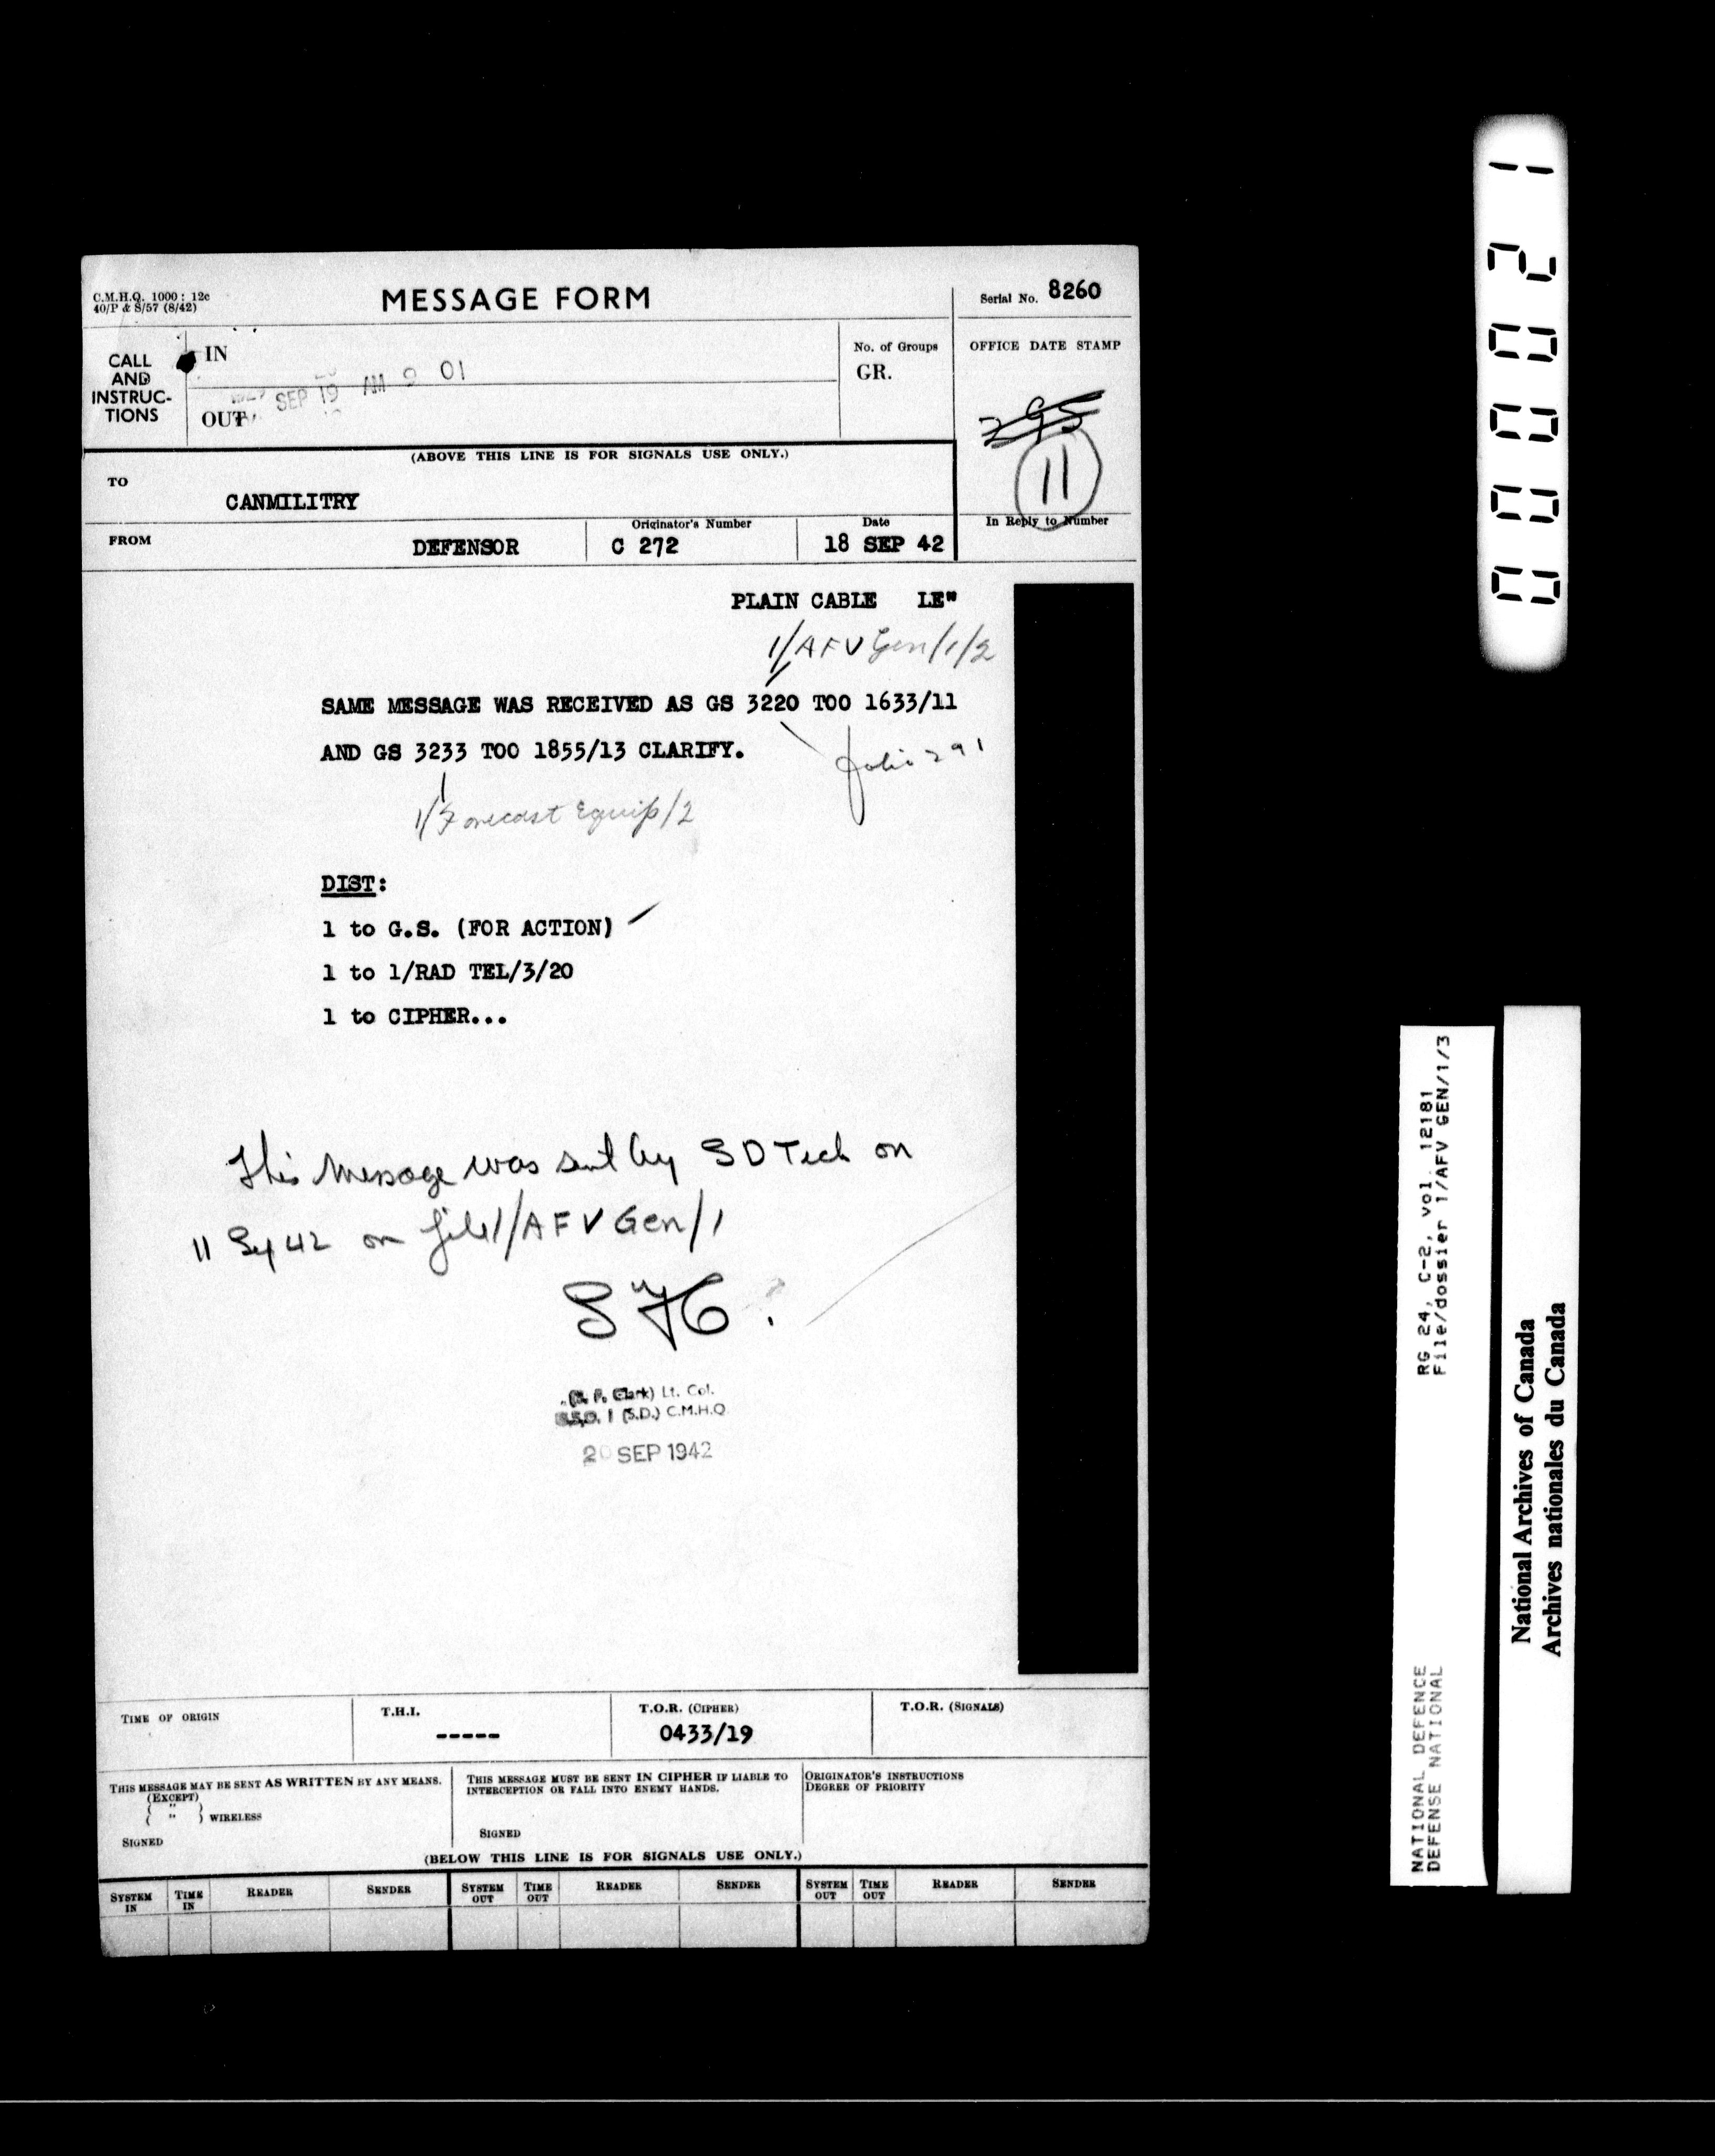 C.M.H.Q. 1000 : 12c
40/P & S/57 (8/42)
MESSAGE FORM
Serial No. 8260
CALL
AND
INSTRUC-
TIONS
IN
SEP 19 AM 9 01
OUT
No. of Groups
GR.
OFFICE DATE STAMP
295
11
(ABOVE THIS LINE IS FOR SIGNALS USE ONLY.)
TO
CANMILITRY
FROM
DEFENSOR
Originator's Number
C 272
Date
18 SEP 42
In Reply to Number
PLAIN CABLE LE"
1/AFV Gen/1/2
SAME MESSAGE WAS RECEIVED AS GS 3220 TOO 1633/11
AND GS 3233 TOO 1855/13 CLARIFY.
folio 291
1/Forecast Equip/2
DIST:
1 to G.S. (FOR ACTION)
1 to 1/RAD TEL/3/20
1 to CIPHER...
This message was sent by SD Tech on
11 Sep 42 on file 1/AFV Gen/1
Clark) Lt. Col.
1 (S.D.) C.M.H.Q.
20 SEP 1942
TIME OF ORIGIN
T.H.I.
-----
T.O.R. (CIPHER)
0433/19
T.O.R. (SIGNALS)
THIS MESSAGE MAY BE SENT AS WRITTEN BY ANY MEANS.
(EXCEPT)
( " ) WIRELESS
SIGNED
THIS MESSAGE MUST BE SENT IN CIPHER IF LIABLE TO
INTERCEPTION OR FALL INTO ENEMY HANDS.
SIGNED
ORIGINATOR'S INSTRUCTIONS
DEGREE OF PRIORITY
(BELOW THIS LINE IS FOR SIGNALS USE ONLY.)
SYSTEM IN TIME IN READER SENDER SYSTEM OUT TIME OUT READER SENDER SYSTEM OUT TIME OUT READER SENDER
000021
NATIONAL DEFENCE RG 24, C-2, vol. 12181
DEFENSE NATIONAL File/dossier 1/AFV GEN/1/3
National Archives of Canada
Archives nationales du Canada